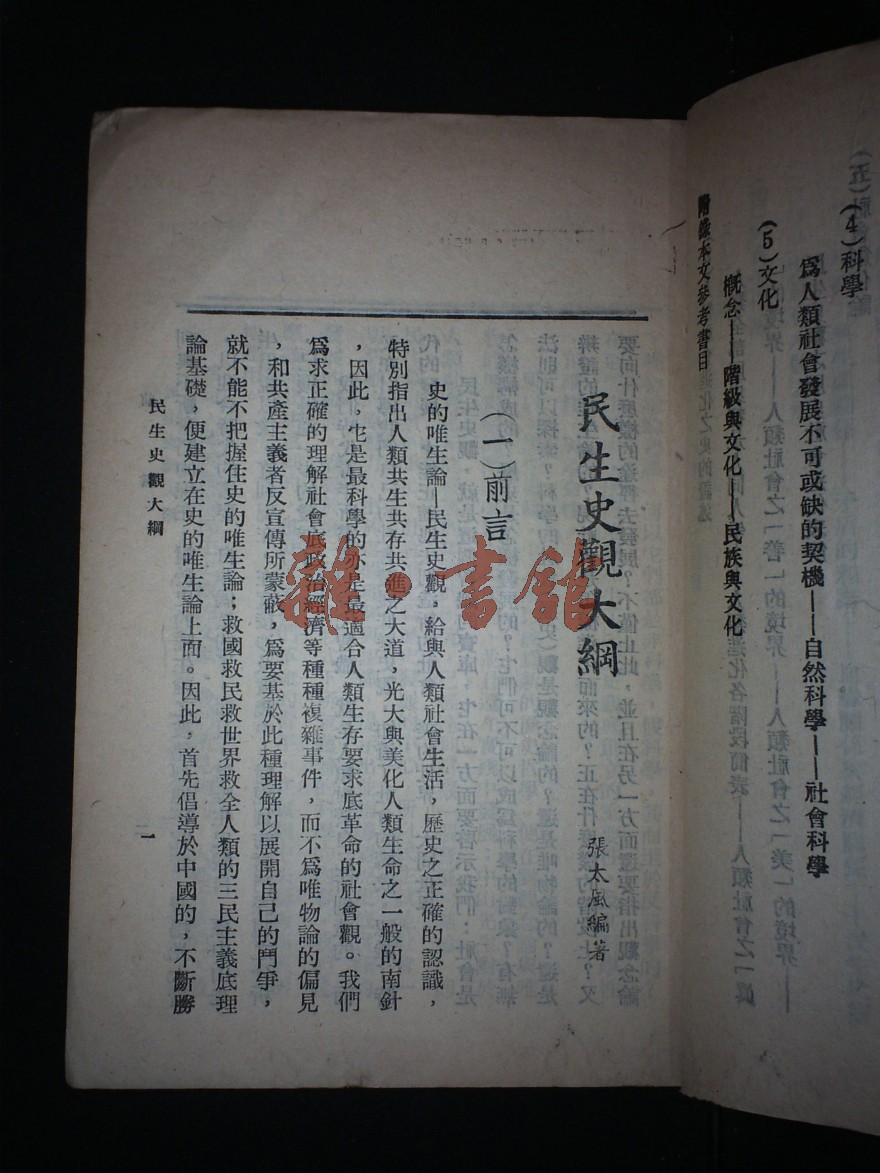 (4)科學
爲人類社會發展不可或缺的契機——自然科學——社會科學
(5)文化
概念——階級與文化——民族與文化
附錄本文參考書目
民生史觀大綱
張太風編著
(一)前言
史的唯生論—民生史觀，給與人類社會生活，歷史之正確的認識，
特別指出人類共生共存共進之大道，光大與美化人類生命之一般的南針
，因此，它是最科學的亦是最適合人類生存要求底革命的社會觀。我們
爲求正確的理解社會底政治經濟等種種複雜事件，而不爲唯物論的偏見
，和共產主義者反宣傳所蒙蔽，爲要基於此種理解以展開自己的鬥爭，
就不能不把握住史的唯生論；救國救民救世界救全人類的三民主義底理
論基礎，便建立在史的唯生論上面。因此，首先倡導於中國的，不斷勝
民生史觀大綱
一
雜·書館